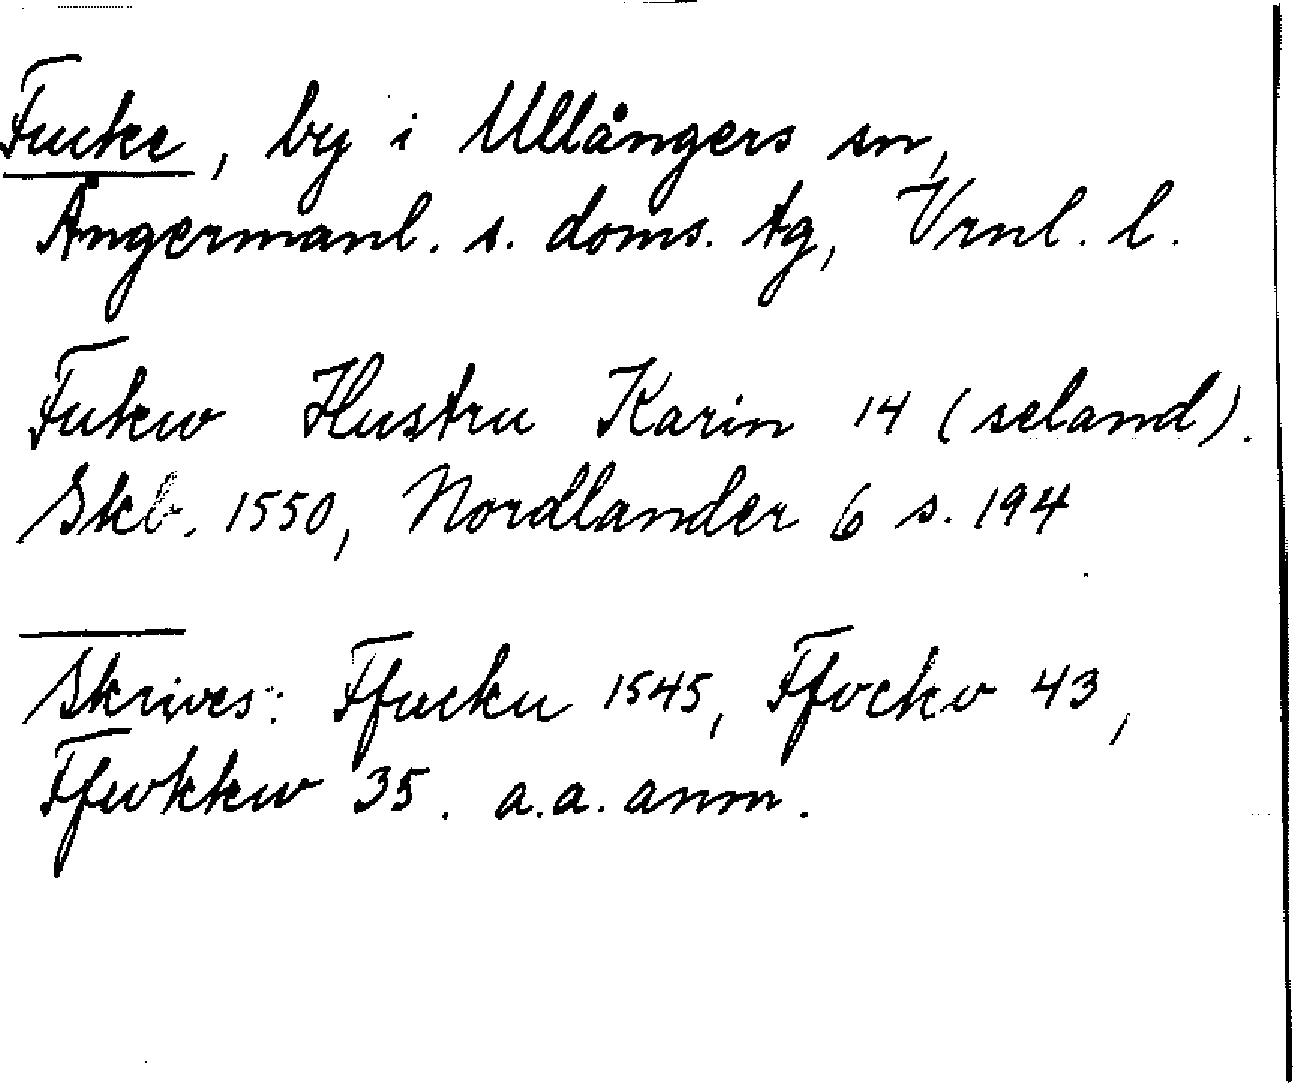 Fucke, by i Ullångers sn,
Ångermanl. s. doms. tg, Vrnl. l.
Fukw Hustru Karin 14 (seland).
Skb. 1550, Nordlander 6 s. 194
Skrives: Ffucku 1545, Ffvckv 43,
Ffwkkw 35. a.a. anm.